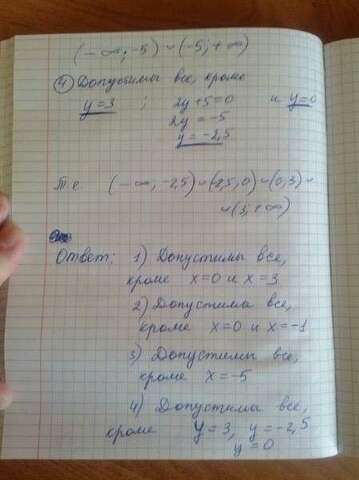 (-∞, -5) ∪ (-5; +∞)
④ Допустимы все, кроме
y=3 ; 2y+5=0 и y=0
2y = -5
y = -2,5
Т.е. (-∞, -2,5) ∪ (-2,5, 0) ∪ (0, 3) ∪
∪ (3; +∞)
Ответ: 1) Допустимы все,
кроме x=0 и x=3
2) Допустима все,
кроме x=0 и x=-1
3) Допустимы все,
кроме x=-5
4) Допустима все,
кроме y=3, y=-2,5
y=0